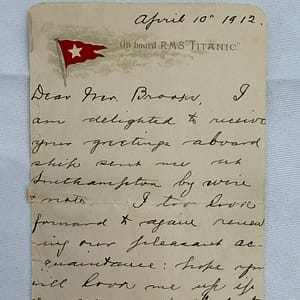 April 10th 1912.
On board R.M.S "TITANIC"
Dear Mr. Brooks, I
am delighted to receive
your greetings aboard
ship sent me at
Southampton by wire
& note. I too look
forward to again renew
ing our pleasant ac-
quaintance: hope you
will look me up if